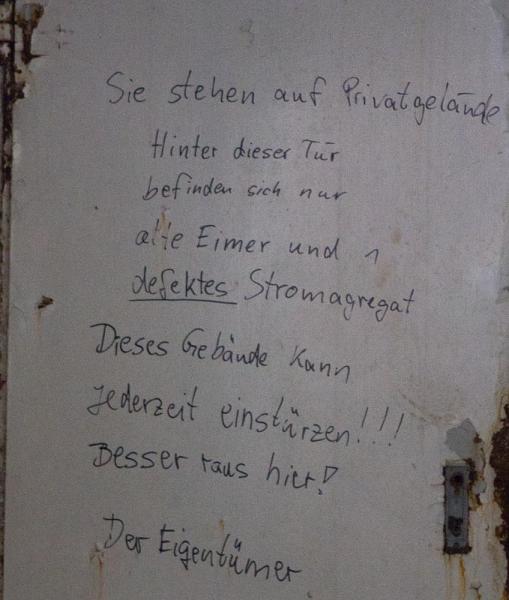 Sie stehen auf Privatgelände
Hinter dieser Tür
befinden sich nur
alte Eimer und 1
defektes Stromagregat
Dieses Gebände kann
jederzeit einstürzen!!!
Besser raus hier!
Der Eigentümer